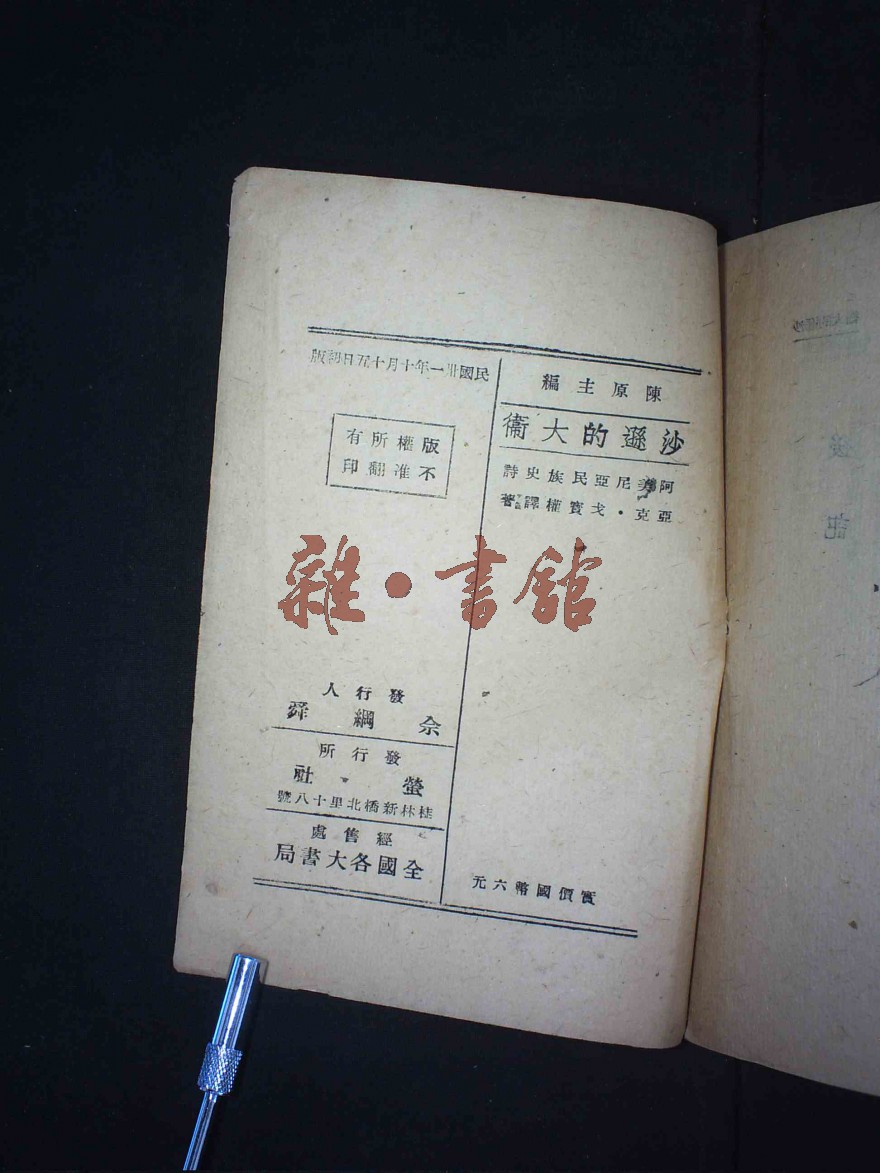 陳原主編
沙遜的大衞
阿美尼亞民族史詩
亞克·戈寶權譯著
民國卅一年十月十五日初版
版權所有
不准翻印
發行人
佘綱舜
發行所
螢社
桂林新橋北里十八號
經售處
全國各大書局
實價國幣六元
雜·書舘